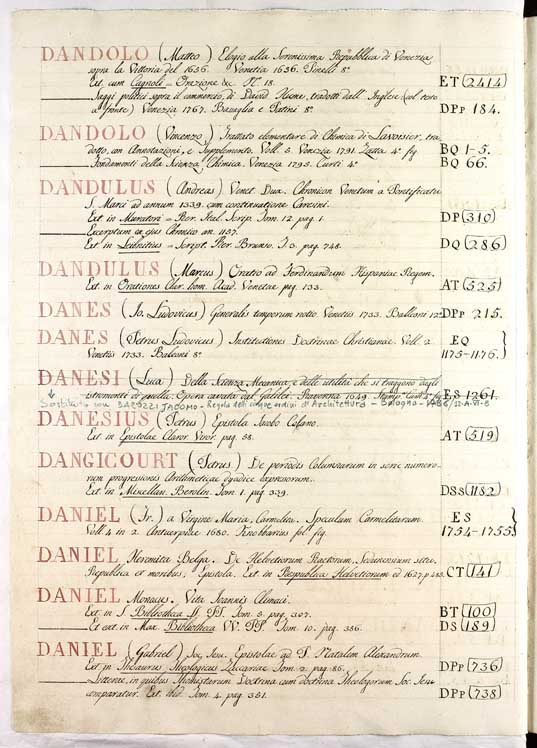 DANDOLO (Matteo) Elogio alla Serenissima Repubblica di Venezia
sopra la Vittoria del 1656. Venetia 1656. Pinelli 8º
Ext. cum Cagnoli - Orazione &c. Nº 18. ET (2414)
Saggi politici sopra il commercio, di David Hume, tradotti dall' Inglese (col testo
a fronte) Venezia 1767. Bassaglia e Patini 8º DPp 184.
DANDOLO (Vincenzo) Trattato elementare di Chimica di Lavoisier, tra
dotto, con Annotazioni, e Supplemento. Voll. 5. Venezia 1791. Zatta 4º fig BQ 1-5.
Fondamenti della Scienza Chimica. Venezia 1793. Curti 4º BQ 66.
DANDULUS (Andreas) Venet. Dux. Chronicon Venetum a Pontificatu
S. Marci ad annum 1339. cum continuatione Caresini.
Ext. in Muratori - Rer. Ital. Scrip. Tom. 12. pag. 1. DP (310)
Excerptum ex ejus Chronico an. 1187.
Ext. in Leibnitius - Script. Rer. Brunsv. T. 3. pag. 748. DQ (286)
DANDULUS (Marcus) Oratio ad Ferdinandum Hispaniae Regem.
Ext. in Orationes Clar. hom. Acad. Venetae pag. 133. AT (525)
DANES (Jo. Ludovicus) Generalis temporum notio. Venetiis 1733. Balleoni 12º DPp 215.
DANES (Petrus Ludovicus) Institutiones Doctrinae Christianae. Voll. 2. EQ
Venetiis 1733. Balleoni 8º 1175-1176.
DANESI (Luca) Della Scienza Mecanica, e delle utilità che si traggono dagli
istromenti di quella, Opera cavata dal Galilei. Ravenna 1649. Stamp. Cam. 4º fig ES 1261.
↓ Sostituito con BAROZZI JACOMO - Regola delli cinque ordini d'Architettura - Bologna -
DANESIUS (Petrus) Epistola Jacobo
Ext. in Epistolae Claror. Viror. pag. 58. AT (519)
DANGICOURT (Petrus) De periodis Columnarum in serie numero-
rum progressionis Arithmeticae dyadice expressorum.
Ext. in Miscellan. Berolin. Tom. 1. pag. 339. DSS (1182)
DANIEL (Fr.) a Virgine Maria, Carmelita. Speculum Carmelitanum. ES
Voll. 4 in 2. Antuerpiae 1680. Knobbarius fol. fig. 1754-1755
DANIEL Heremita Belga. De Helvetiorum Raetorum, Sedunensium situ,
Republica et moribus; Epistola. Ext. in Respublica Helvetiorum ed. 1627. p. 385. CT (141)
DANIEL Monacus. Vita Joannis Climaci.
Ext. in S. Bibliotheca SS. PP. Tom. 5. pag. 207. BT (100)
Et ext. in Max. Bibliotheca VV. PP. Tom. 10. pag. 386. DS (189)
DANIEL (Gabriel) Soc. Jesu. Epistolae ad P. Natalem Alexandrum.
Ext. in Thesaurus Theologicus Zaccariae Tom. 2. pag. 86. DPp (736)
Litterae, in quibus Thomistarum Doctrina cum doctrina Theologorum Soc. Jesu
comparatur. Ext. ibid. Tom. 4. pag. 381. DPp (738)